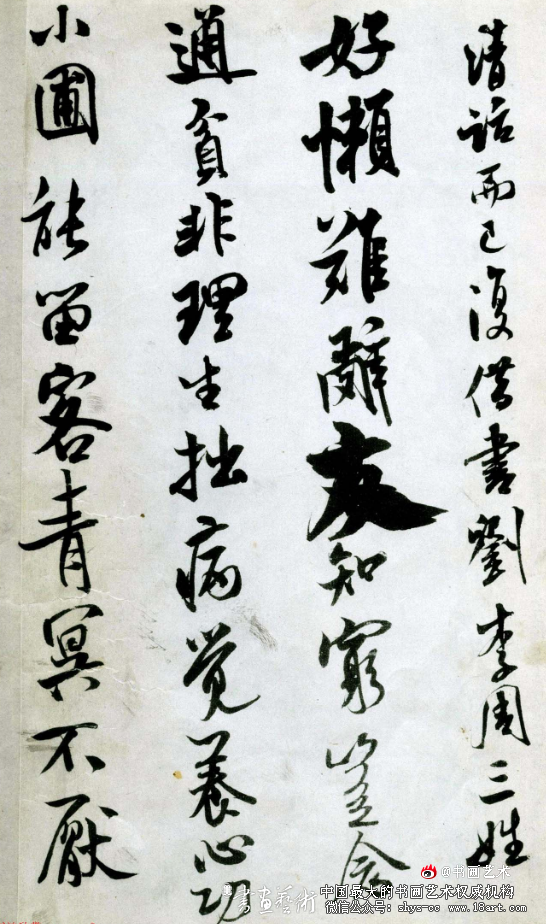 清話而已復借書劉李周三姓
好懶難辭友知窮豈念
通貧非理生拙病覺養心功
小圃能留客青冥不厭
@书画艺术
書畫藝術
中国最大的书画艺术权威机构
微信公众号:shys-cc www.18art.com